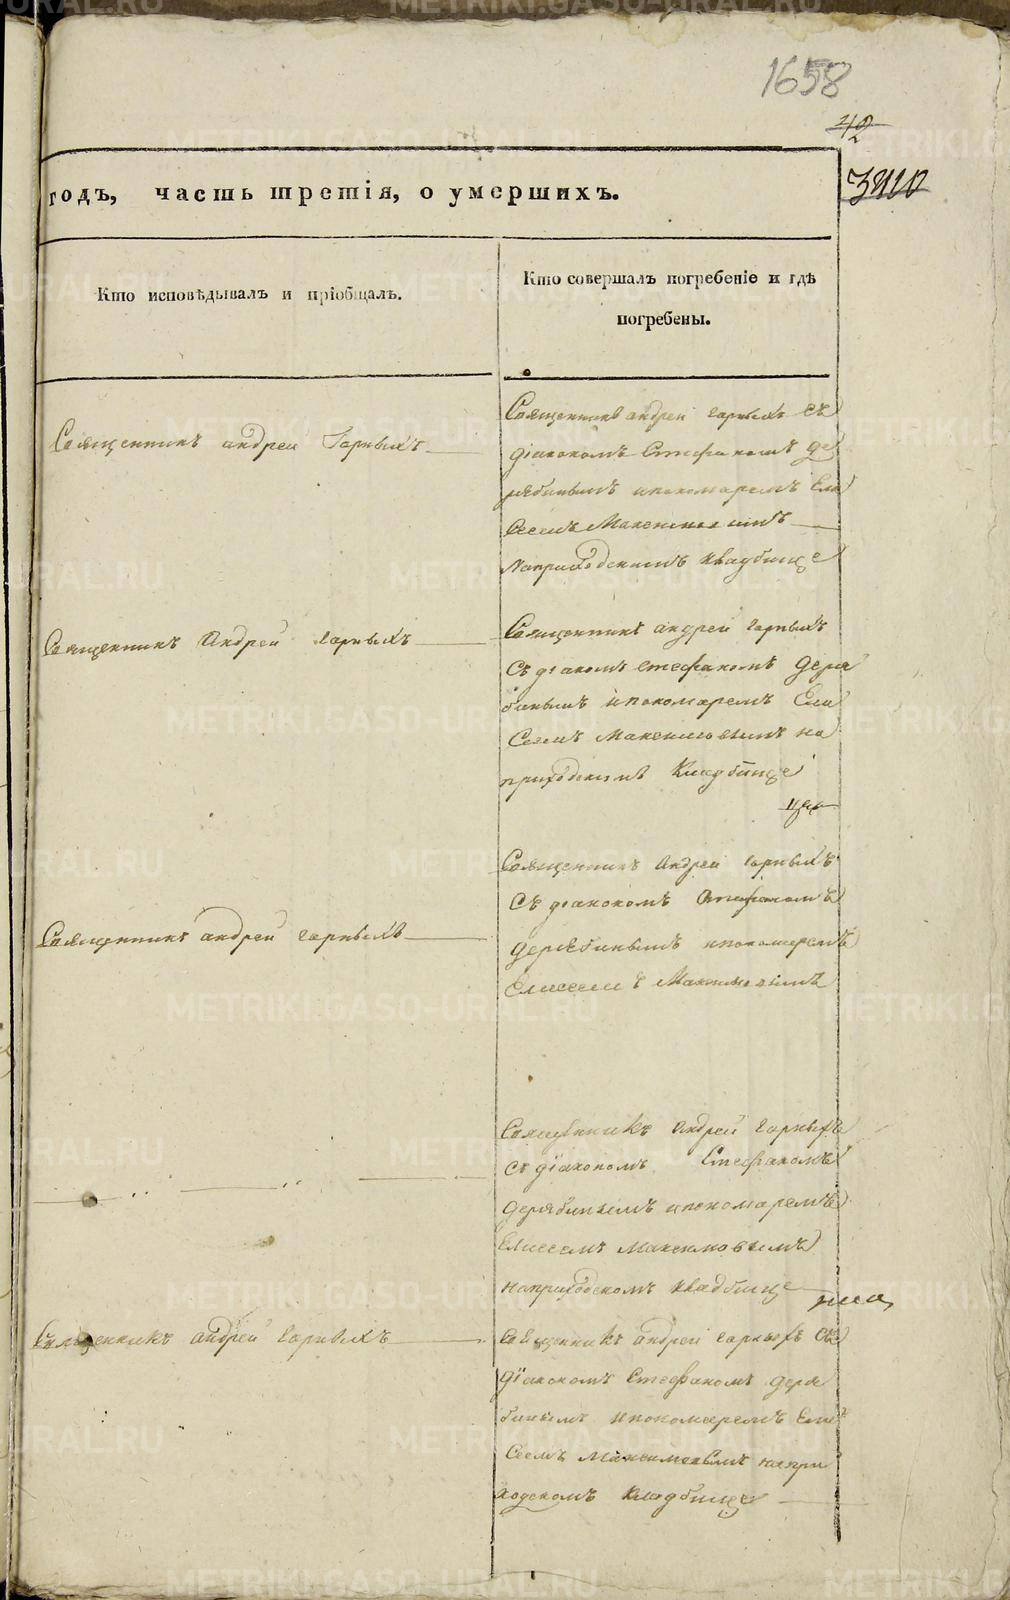 1658
42
годъ, часть третія, о умершихъ.
Кто исповѣдывалъ и пріобщалъ.
Кто совершалъ погребеніе и гдѣ
погребены.
Священникъ андрей Гарныхъ
Священникъ андрей гарныхъ съ
діакономъ Стефаномъ де
рябинымъ ипономаремъ Ели
Сеемъ Максимовымъ
Наприходскимъ кладбище
Священникъ Андрей гарныхъ
Священникъ андрей гарныхъ
Съ діакономъ стефаномъ Деря
бинымъ ипономаремъ Ели
Сеемъ Максимовымъ на
приходскимъ Кладбище
Священникъ андрей гарныхъ
Священникъ Андрей гарныхъ
Съ діакономъ Стефаномъ
дерябинымъ ипономаремъ
Елисеемъ Максимовымъ
Священникъ Андрей гарныхъ
Съ діакономъ Стефаномъ
дерябинымъ ипономаремъ
Елисеемъ Максимовымъ
наприходскомъ кладбище
Священникъ андрей гарныхъ
Священникъ андрей гарныхъ Съ
діакономъ Стефаномъ деря
бинымъ ипономаремъ Ели
Сеемъ Максимовымъ напри
ходскомъ Кладбище
METRIKI.GASO-URAL.RU